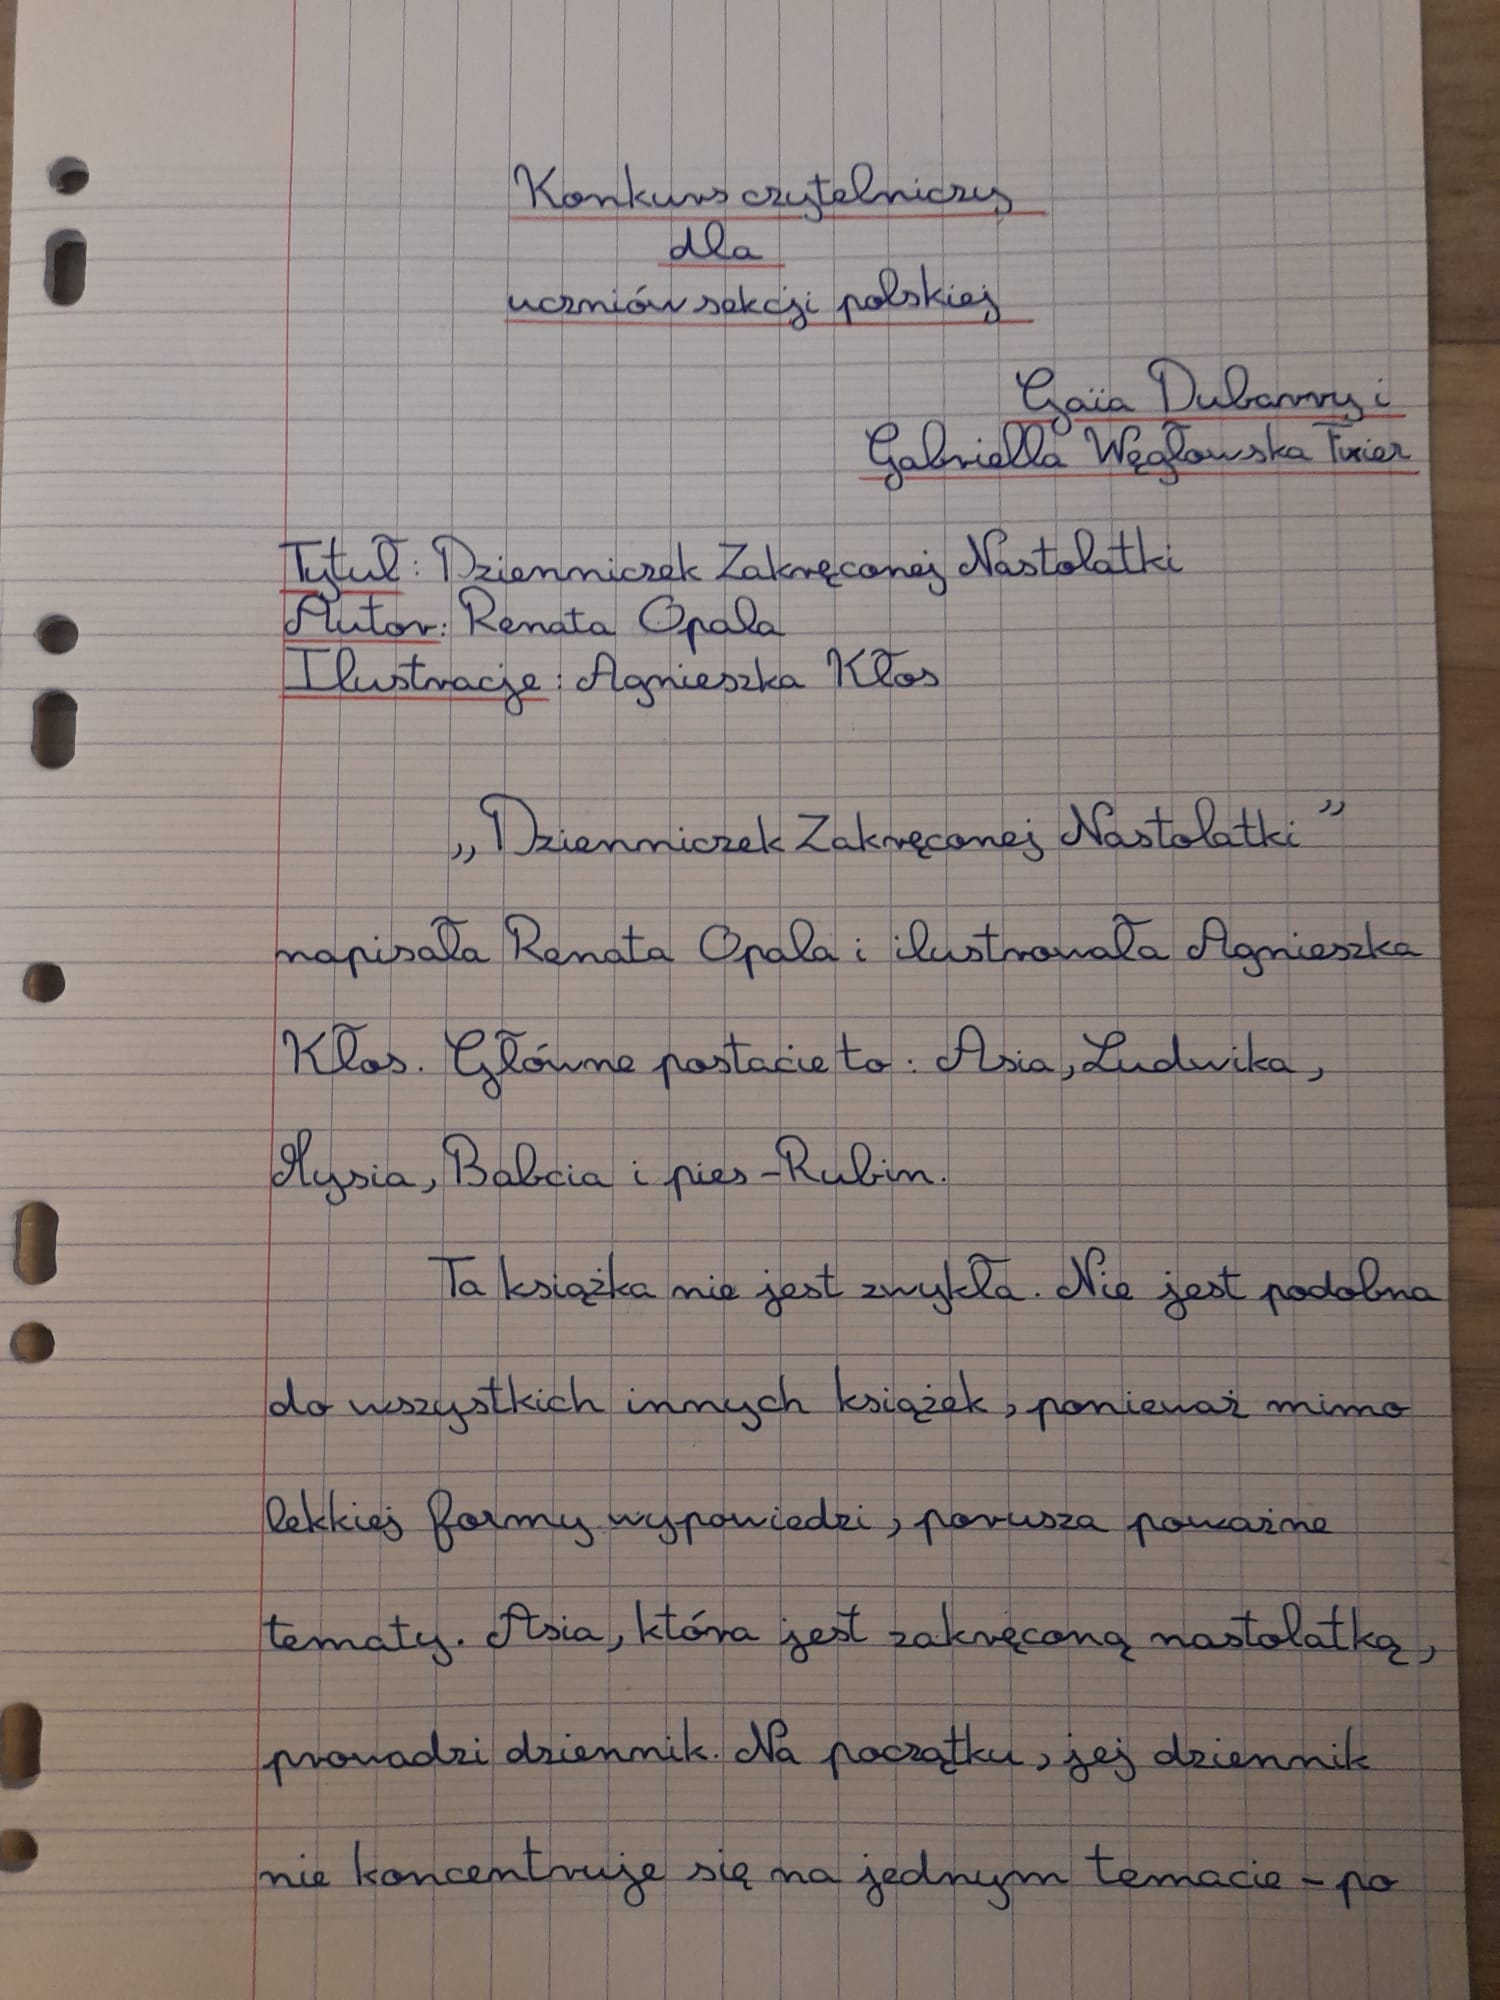 Konkurs czytelniczy
dla
uczniów sekcji polskiej
Gaïa Dubarry i
Gabriella Węgłowska Tixier
Tytuł: Dzienniczek Zakręconej Nastolatki
Autor: Renata Opala
Ilustracje: Agnieszka Kłos
„Dzienniczek Zakręconej Nastolatki”
napisała Renata Opala i ilustrowała Agnieszka
Kłos. Główne postacie to: Asia, Ludwika,
Mysia, Babcia i pies - Rubin.
Ta książka nie jest zwykła. Nie jest podobna
do wszystkich innych książek, ponieważ mimo
lekkiej formy wypowiedzi, porusza poważne
tematy. Asia, która jest zakręconą nastolatką,
prowadzi dziennik. Na początku, jej dziennik
nie koncentruje się na jednym temacie - po